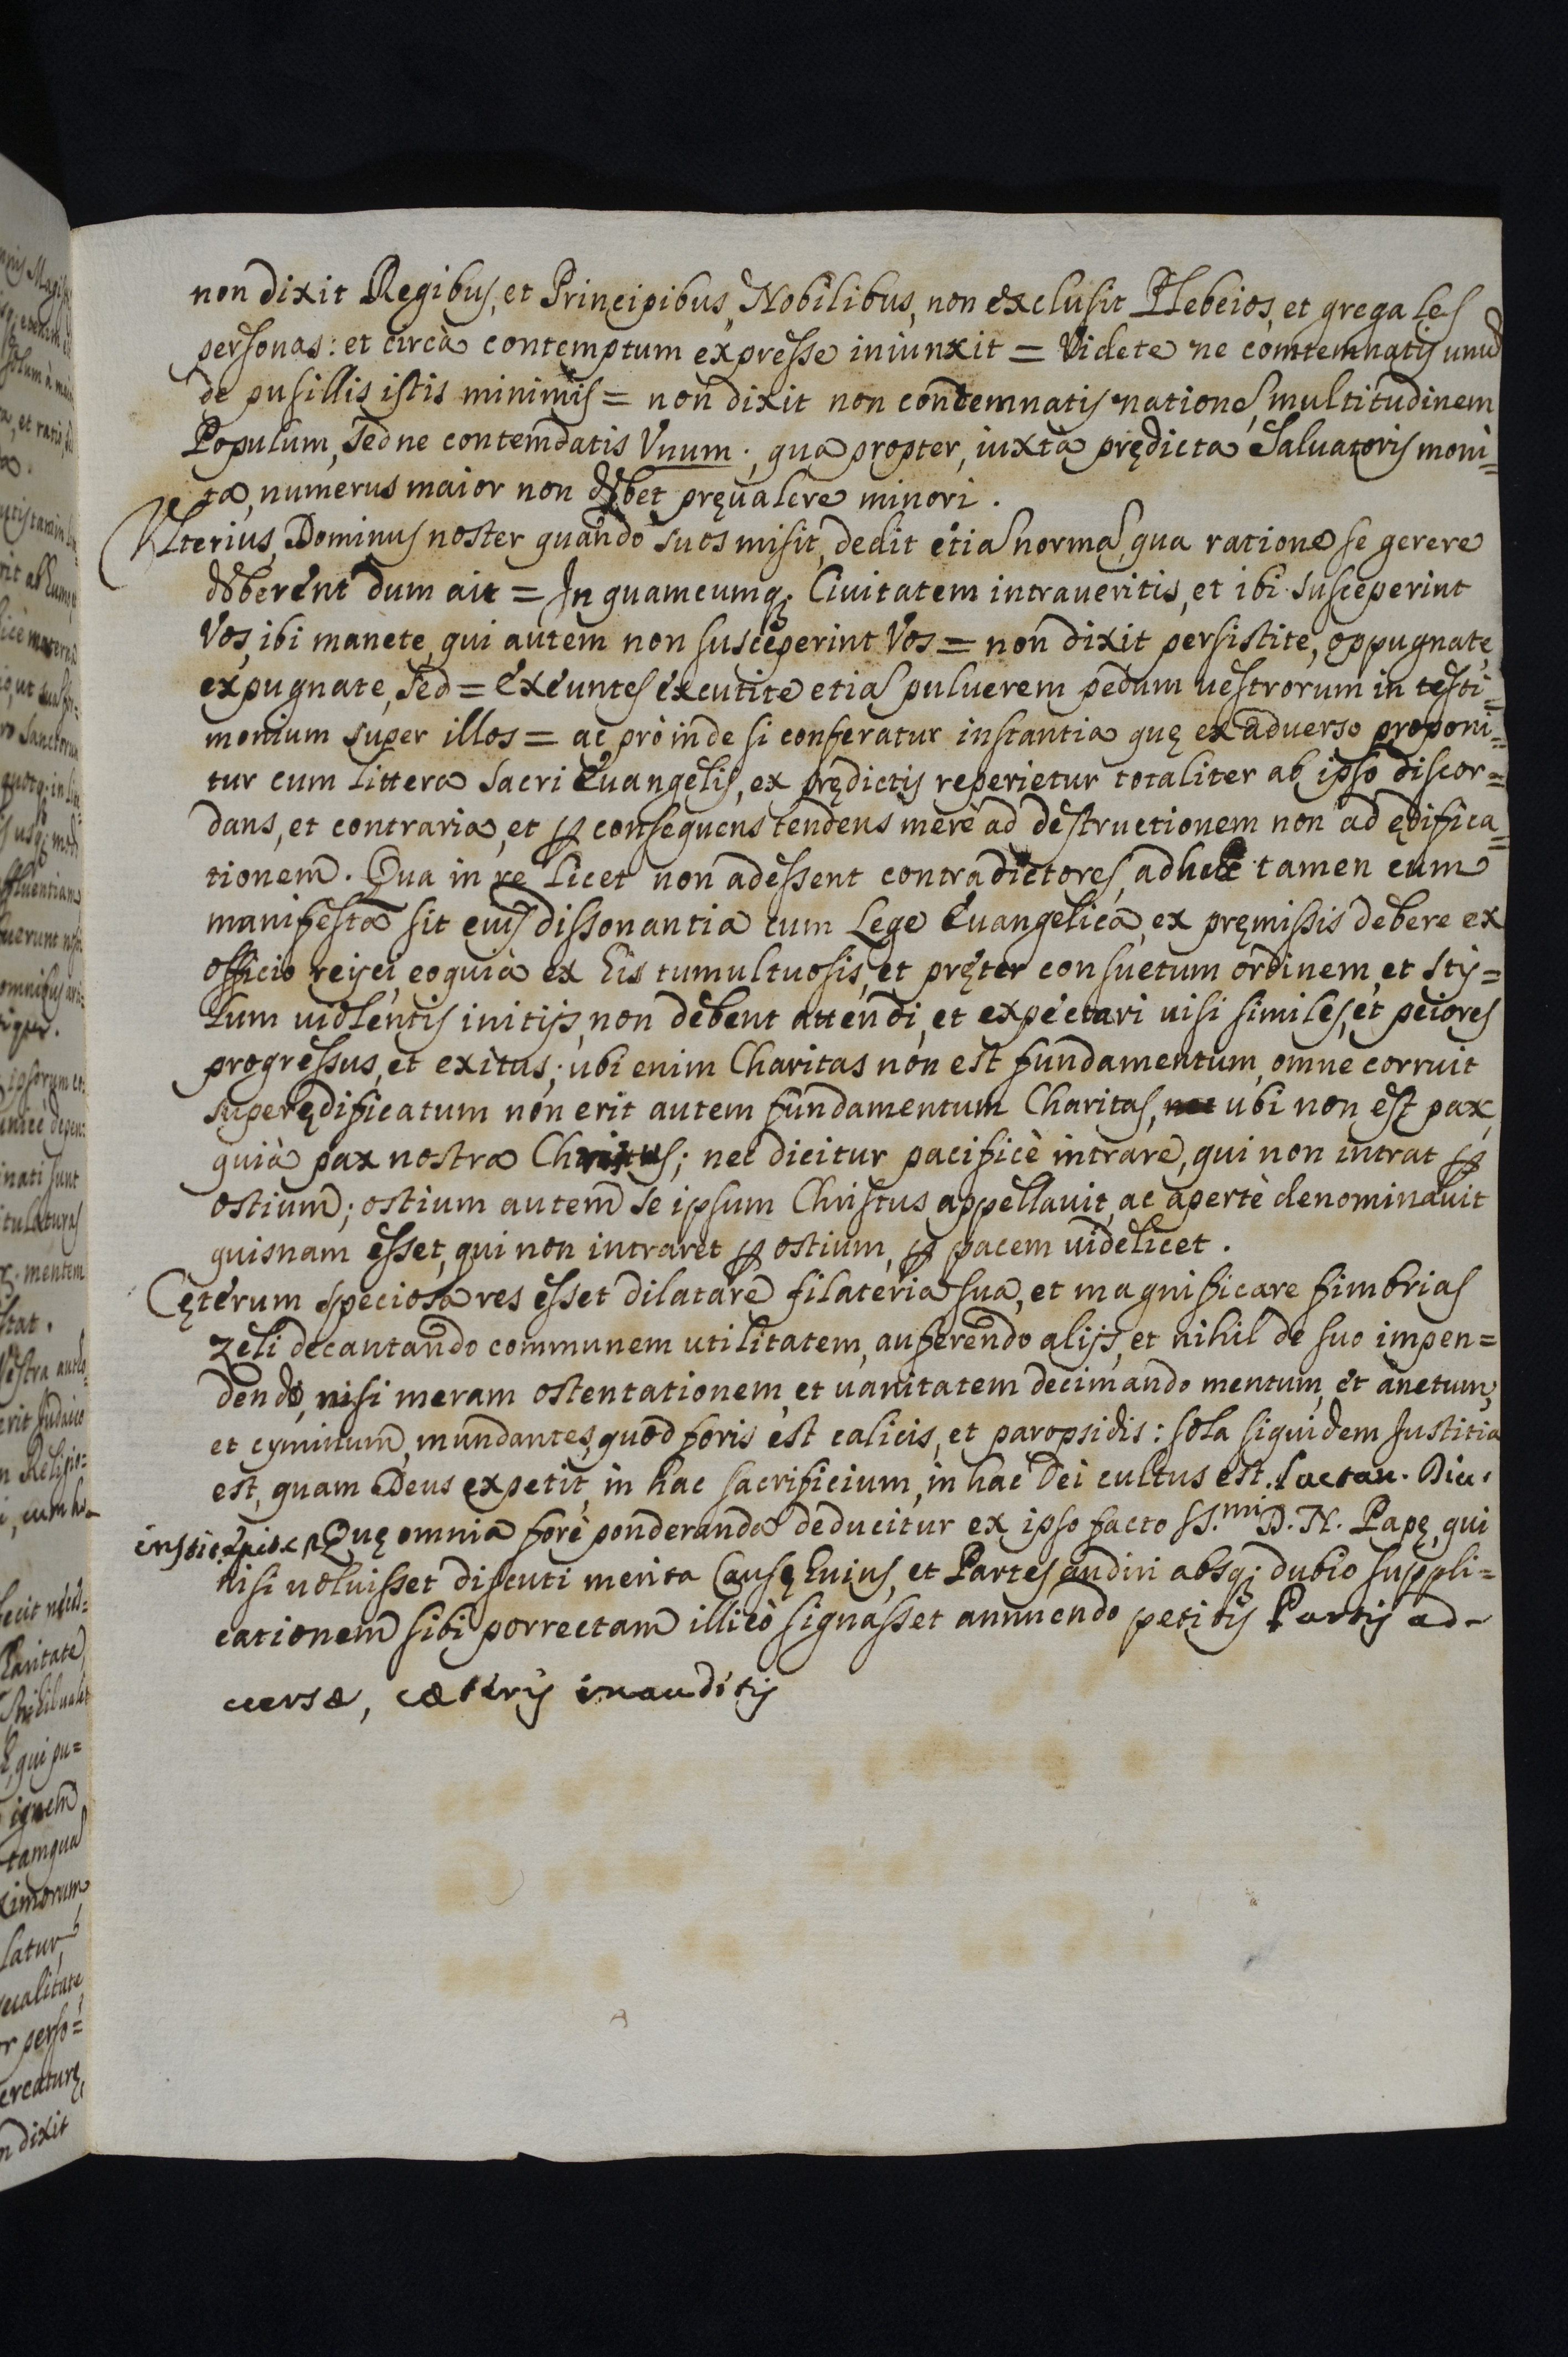 non dixit Regibus, et Principibus, Nobilibus, non exclusit Plebeios, et gregales
personas: et circà contemptum expresse iniunxit = Videte ne comtemnatis unũ
de pusillis istis minimis = non dixit non contemnatis nationes, multitudinem
Populum, sed ne contemdatis Vnum ; qua propter, iuxta prędicta Saluatoris moni=
ta, numerus maior non debet pręualere minori.
Vlterius Dominus noster quando suos misit, dedit etiã normã qua ratione se gerere
deberent dum ait = In quamcumq; Ciuitatem intraueritis, et ibi susceperint
Vos, ibi manete, qui autem non susceperint Vos = non dixit persistite, oppugnate,
expugnate, sed = Exeuntes excutite etiã puluerem pedum uestrorum in testi=
monium super illos = ac proinde si conferatur instantia quę ex aduerso proponi=
tur cum littera Sacri Euangelij, ex prędictis reperietur totaliter ab ipso discor=
dans, et contraria, et ꝑ consequens tendens merè ad destructionem non ad ędifica=
tionem. Qua in re licet non adessent contradictores, adhuc tamen cum
manifesta sit eius dissonantia cum Lege Euangelica, ex pręmissis debere ex
officio reijci, eoquia ex his tumultuosis, et pręter consuetum ordinem, et sty=
lum uiolentis initijs, non debent attendi, et expectari nisi similes, et peiores
progressus, et exitus; ubi enim Charitas non est fundamentum, omne corruit
superędificatum non erit autem fundamentum Charitas, ubi non est pax,
quià pax nostra Christus; nec dicitur pacificè intrare, qui non intrat ꝑ
ostium; ostium autem se ipsum Christus appellauit, ac apertè denominauit
quisnam esset, qui non intraret ꝑ ostium, ꝑ pacem uidelicet.
Cęterum speciosa res esset dilatare filateria sua, et magnificare fimbrias
zeli decantando communem utilitatem, auferendo alijs, et nihil de suo impen=
dendo, nisi meram ostentationem, et uanitatem decimando mentum, et anetum,
et cyminum, mundantes, quod foris est calicis, et paropsidis: sola siquidem Iustitia
est, quam Deus expetit, in hac sacrificium, in hac Dei cultus est. Lactan. Diu.
Quę omnia forè ponderanda deducitur ex ipso facto SS.mi D. N. Papę, qui
nisi uoluisset discuti merita Causę huius, et Partes audiri absq; dubio suppli=
cationem sibi porrectam illicò signasset annuendo petitis Partis ad-
uersæ, cæteris inauditis